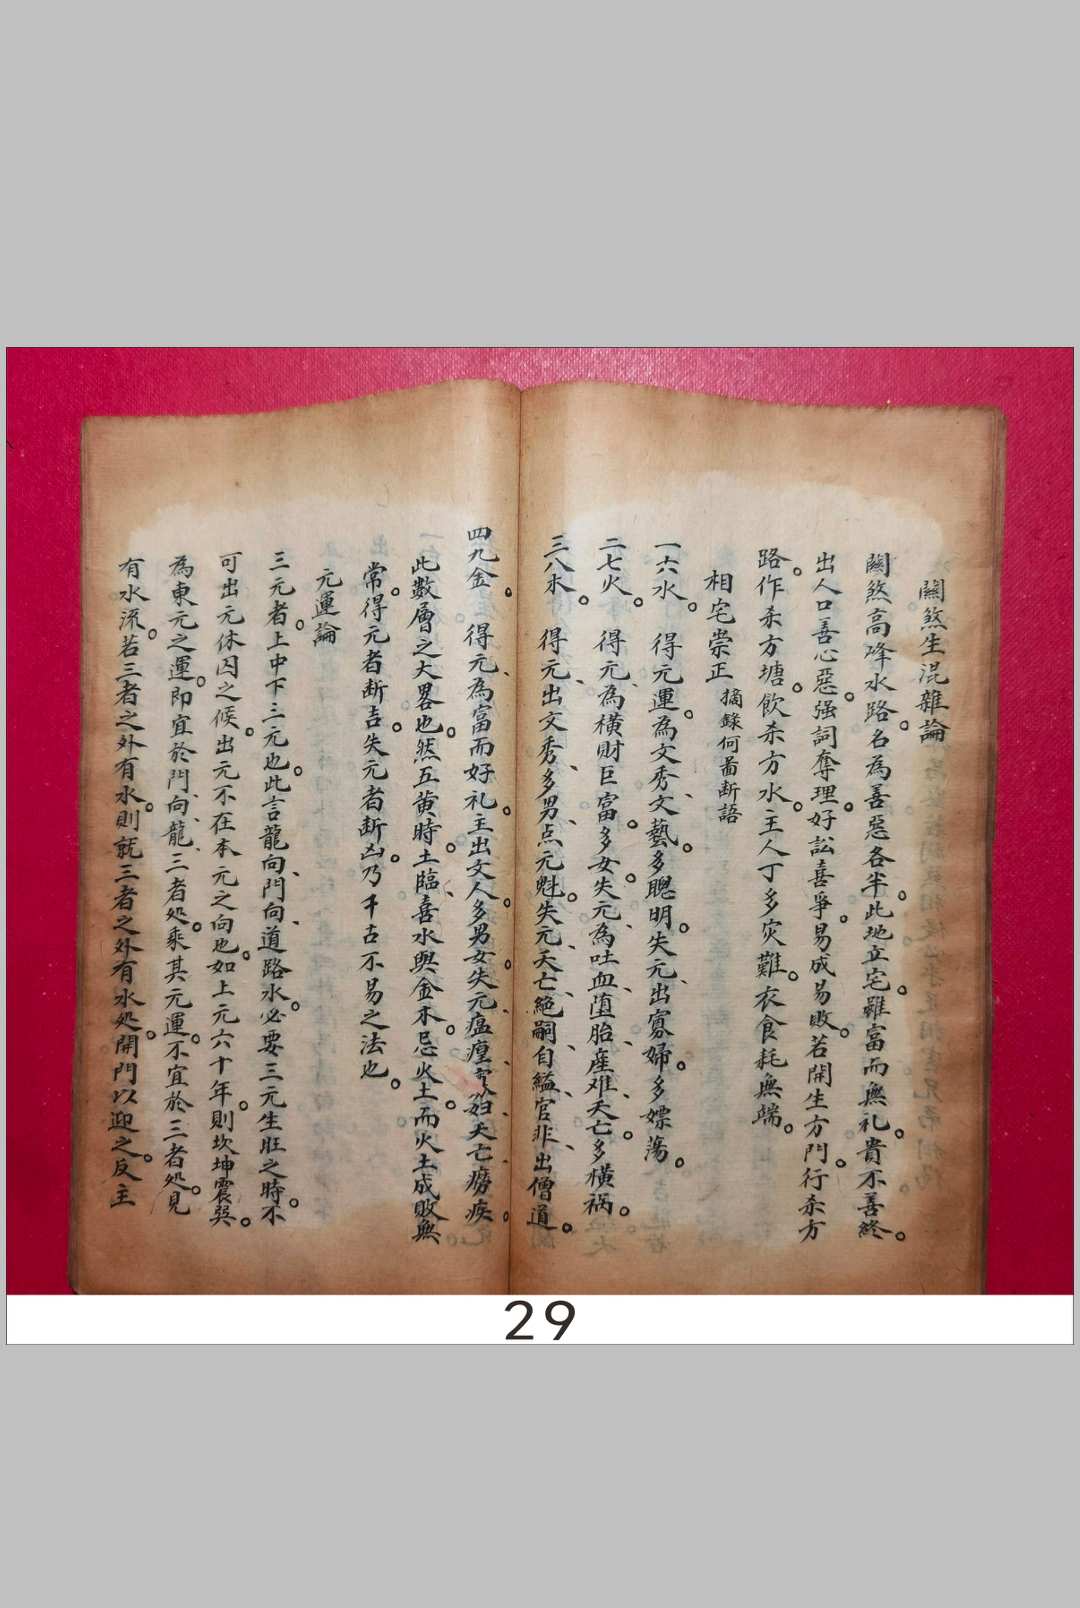 關煞生混雜論
關煞高峰水路。名為善惡各半。此地立宅。雖富而無礼。貴不善終。
出人口善心惡。强詞奪理。好訟喜爭。易成易敗。若開生方門。行杀方
路。作杀方塘。飲杀方水。主人丁多灾難。衣食耗無端。
相宅崇正 摘錄何啚断語
一六水。 得元運為文秀。文藝、多聰明。失元、出寡婦。多嫖蕩。
二七火。 得元、為橫財、巨富。多女。失元、為吐血、堕胎、産难、夭亡。多橫祸。
三八木。 得元、出文秀、多男、点元魁。失元、夭亡、絶嗣、自縊、官非、出僧道。
四九金。 得元、為富而好礼。主出文人、多男女。失元、瘟瘟、寡妇、夭亡、癆疾。
此數層之大畧也。然五黄時土臨、喜水與金木。忌火土。而火土成敗無
常。得元者断吉。失元者断凶。乃千古不易之法也。
元運論
三元者。上中下三元也。此言龍向、門向、道路水。必要三元生旺之時。不
可出元休囚之候。出元不在本元之向也。如上元六十年。則坎坤震巽。
為東元之運。即宜於門、向、龍、三者処。乘其元運。不宜於三者処。見
有水流。若三者之外有水。則就三者之外有水処。開門以迎之。反主
29